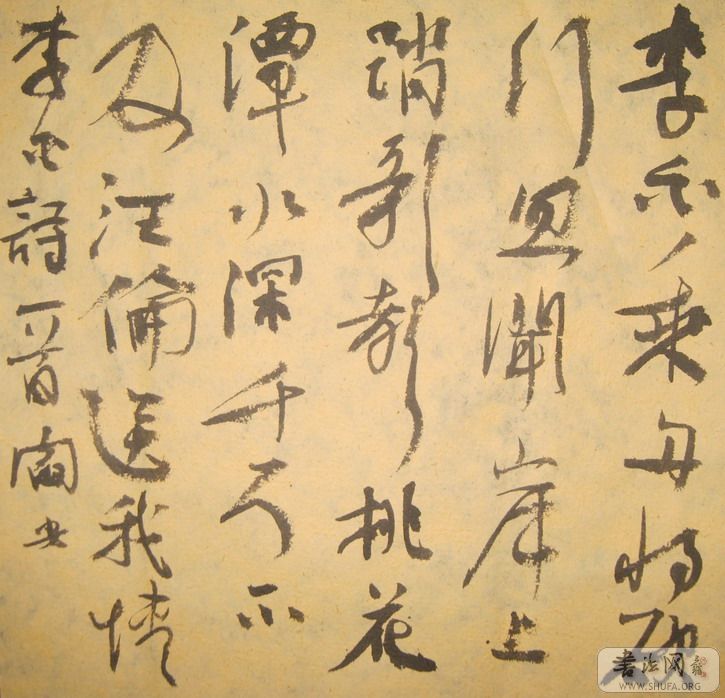 李白乘舟将欲
行忽聞岸上
踏歌聲桃花
潭水深千尺不
及汪倫送我情
李白詩一首
書法网
WWW.SHUFA.ORG